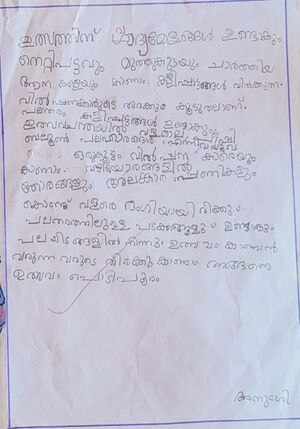 ഉത്സവത്തിന് വാദ്യമേളങ്ങൾ ഉണ്ടാകും
നെറ്റിപട്ടവും മുത്തുകുടയും ചാർത്തിയ
ആന കളെയും കാണാം. കളിപ്പാട്ടങ്ങൾ വിൽക്കുന്ന
വിൽപ്പനക്കാരുടെ തിരക്കും കൂടുതലാണ്.
പലതരം കളിപ്പാട്ടങ്ങൾ
ഉത്സവപന്തലിൽ വള മാല
ബലൂൺ പലഹാരങ്ങൾ
ഒരുകൂട്ടം വിൽപ്പന കാരെയും
കാണാം. വഴിയോരങ്ങളിൽ
തോരണങ്ങളും അലങ്കാര പണികളും
കൊണ്ട് വളരെ ഭംഗിയായിരിക്കും.
പലതരത്തിലുള്ള പടക്കങ്ങളും ഉണ്ടാകും
പലയിടങ്ങളിൽ നിന്നും ഉത്സവം കാണാൻ
വരുന്ന വരുടെ തിരക്കു കാണാം അങ്ങനെ
ഉത്സവം പൊടിപൂരം